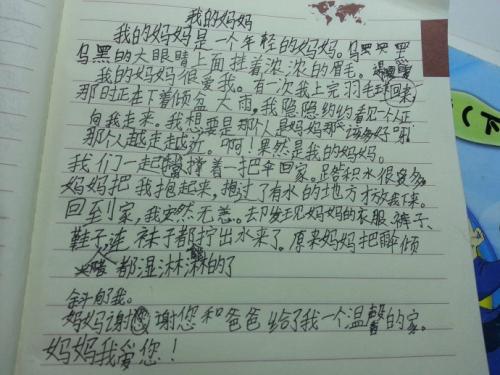 我的妈妈
我的妈妈是一个年轻的妈妈。乌黑
乌黑的大眼睛上面挂着浓浓的眉毛。
我的妈妈很爱我。有一次我上完羽毛球回来
那时正在下着倾盆大雨,我隐隐约约看见一个人正
向我走来。我想要是那个人是妈妈那该多好呀
那个人越走越近。啊!果然是我的妈妈。
我们一起撑着一把伞回家。路积水很多
妈妈把我抱起来,抱过了有水的地方才放我下来。
回到家,我安然无恙。却发现妈妈的衣服、裤子、
鞋子,连袜子都拧出水来了。原来妈妈把雨伞倾
都湿淋淋的了
斜向了我。
妈妈谢谢您和爸爸给了我一个温馨的家。
妈妈我爱您!
下)